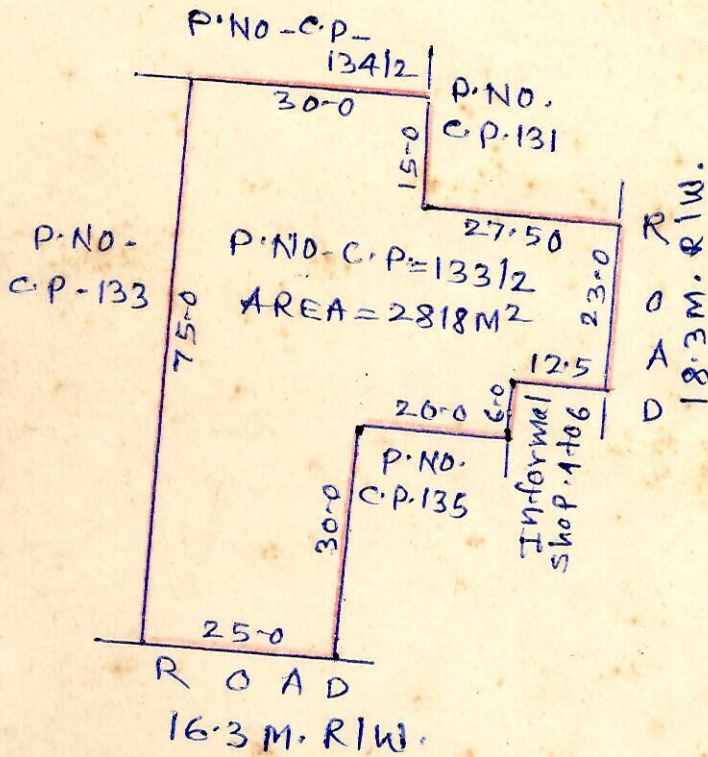 P.NO-C.P-
134/2
30-0
P.NO.
C.P.131
15-0
27.50
P.NO-
C.P-133
75-0
P.NO-C.P.=133/2
AREA=2818M²
23-0
ROAD
18.3M.R/W.
12.5
6-0
20-0
Informal
shop.1to6
P.NO.
C.P.135
30-0
25-0
ROAD
16.3 M. R/W.